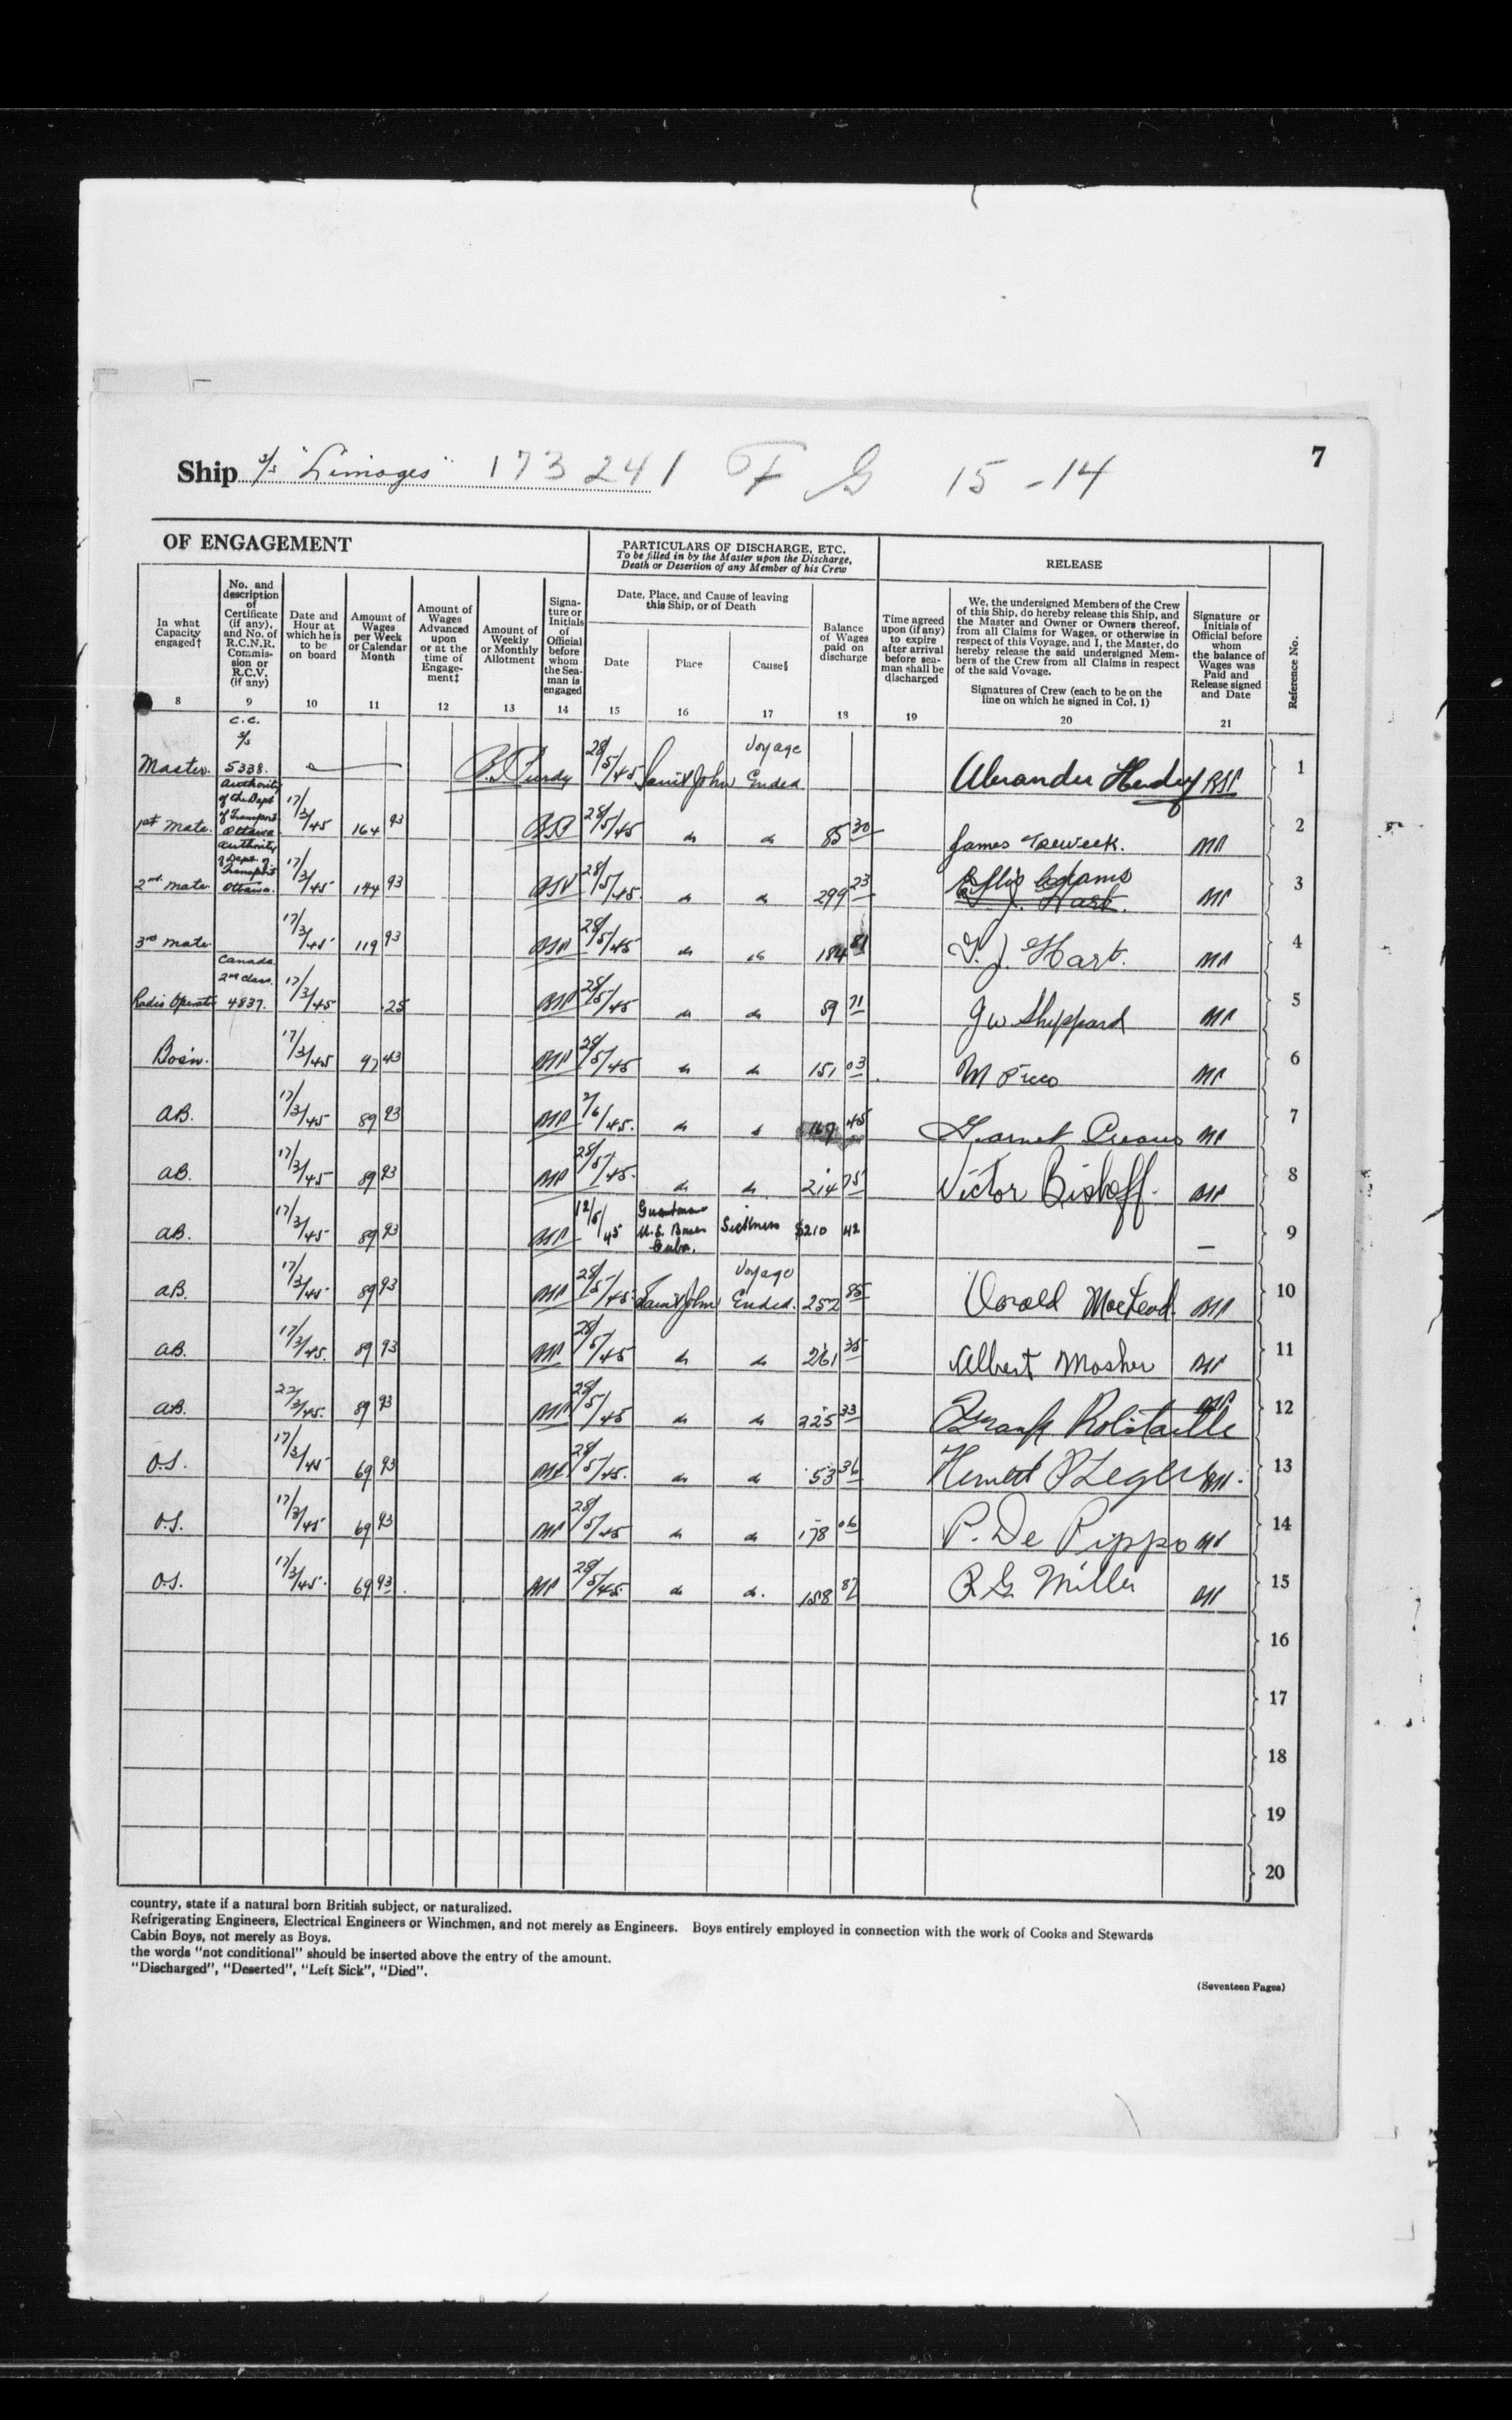 7
Ship S/S "Limoges" 173241 F G 15-14
OF ENGAGEMENT
PARTICULARS OF DISCHARGE, ETC.
To be filled in by the Master upon the Discharge,
Death or Desertion of any Member of his Crew
RELEASE
In what Capacity engaged†
No. and description of Certificate (if any), and No. of R.C.N.R. Commission or R.C.V. (if any)
Date and Hour at which he is to be on board
Amount of Wages per Week or Calendar Month
Amount of Wages Advanced upon or at the time of Engagement‡
Amount of Weekly or Monthly Allotment
Signature or Initials of Official before whom the Seaman is engaged
Date, Place, and Cause of leaving this Ship, or of Death
Date
Place
Cause§
Balance of Wages paid on discharge
Time agreed upon (if any) to expire after arrival before seaman shall be discharged
We, the undersigned Members of the Crew
of this Ship, do hereby release this Ship, and
the Master and Owner or Owners thereof,
from all Claims for Wages, or otherwise in
respect of this Voyage, and I, the Master, do
hereby release the said undersigned Mem-
bers of the Crew from all Claims in respect
of the said Voyage.
Signatures of Crew (each to be on the
line on which he signed in Col. 1)
Signature or Initials of Official before whom the balance of Wages was Paid and Release signed and Date
Reference No.
8 9 10 11 12 13 14 15 16 17 18 19 20 21
Master. C.C. S/S 5338. 28/5/45 Saint John Voyage Ended 1
1st Mate. Authority of the Dept of Transport Ottawa. 17/3/45 164 93 28/5/45 do do 85 30 James Treweek. 2
2nd Mate Authority of Dept. of Transport Ottawa. 17/3/45 144 93 28/5/45 do do 299 23 Adams 3
3rd Mate 17/3/45 119 93 28/5/45 do do 184 81 J. Hart. 4
Radio Operator Canada 2nd class. 4837. 17/3/45 .25 28/5/45 do do 89 71 J W Sheppard 5
Bos'n. 17/3/45 97 43 28/5/45 do do 151 03 6
A.B. 17/3/45 89 93 2/6/45. do do 45 Garnet 7
A.B. 17/3/45 89 93 28/5/45. do do 214 75 Victor Bishoff. 8
A.B. 17/3/45 89 93 12/5/45 U.S. Base Cuba. Sickness $210 42 — 9
A.B. 17/3/45 89 93 28/5/45. Saint John Voyage Ended. 252 85 MacLeod. 10
A.B. 17/3/45. 89 93 28/5/45 do do 261 35 Albert Mosher 11
A.B. 22/3/45. 89 93 28/5/45 do do 225 33 Frank Robitaille 12
O.S. 17/3/45 69 93 28/5/45. do do 53 36 13
O.S. 17/3/45 69 93 28/5/45 do do 178 06 P. De Pippo 14
O.S. 17/3/45. 69 93 28/5/45. do do. 158 87 R G Miller 15
16
17
18
19
20
country, state if a natural born British subject, or naturalized.
Refrigerating Engineers, Electrical Engineers or Winchmen, and not merely as Engineers. Boys entirely employed in connection with the work of Cooks and Stewards
Cabin Boys, not merely as Boys.
the words "not conditional" should be inserted above the entry of the amount.
"Discharged", "Deserted", "Left Sick", "Died".
(Seventeen Pages)